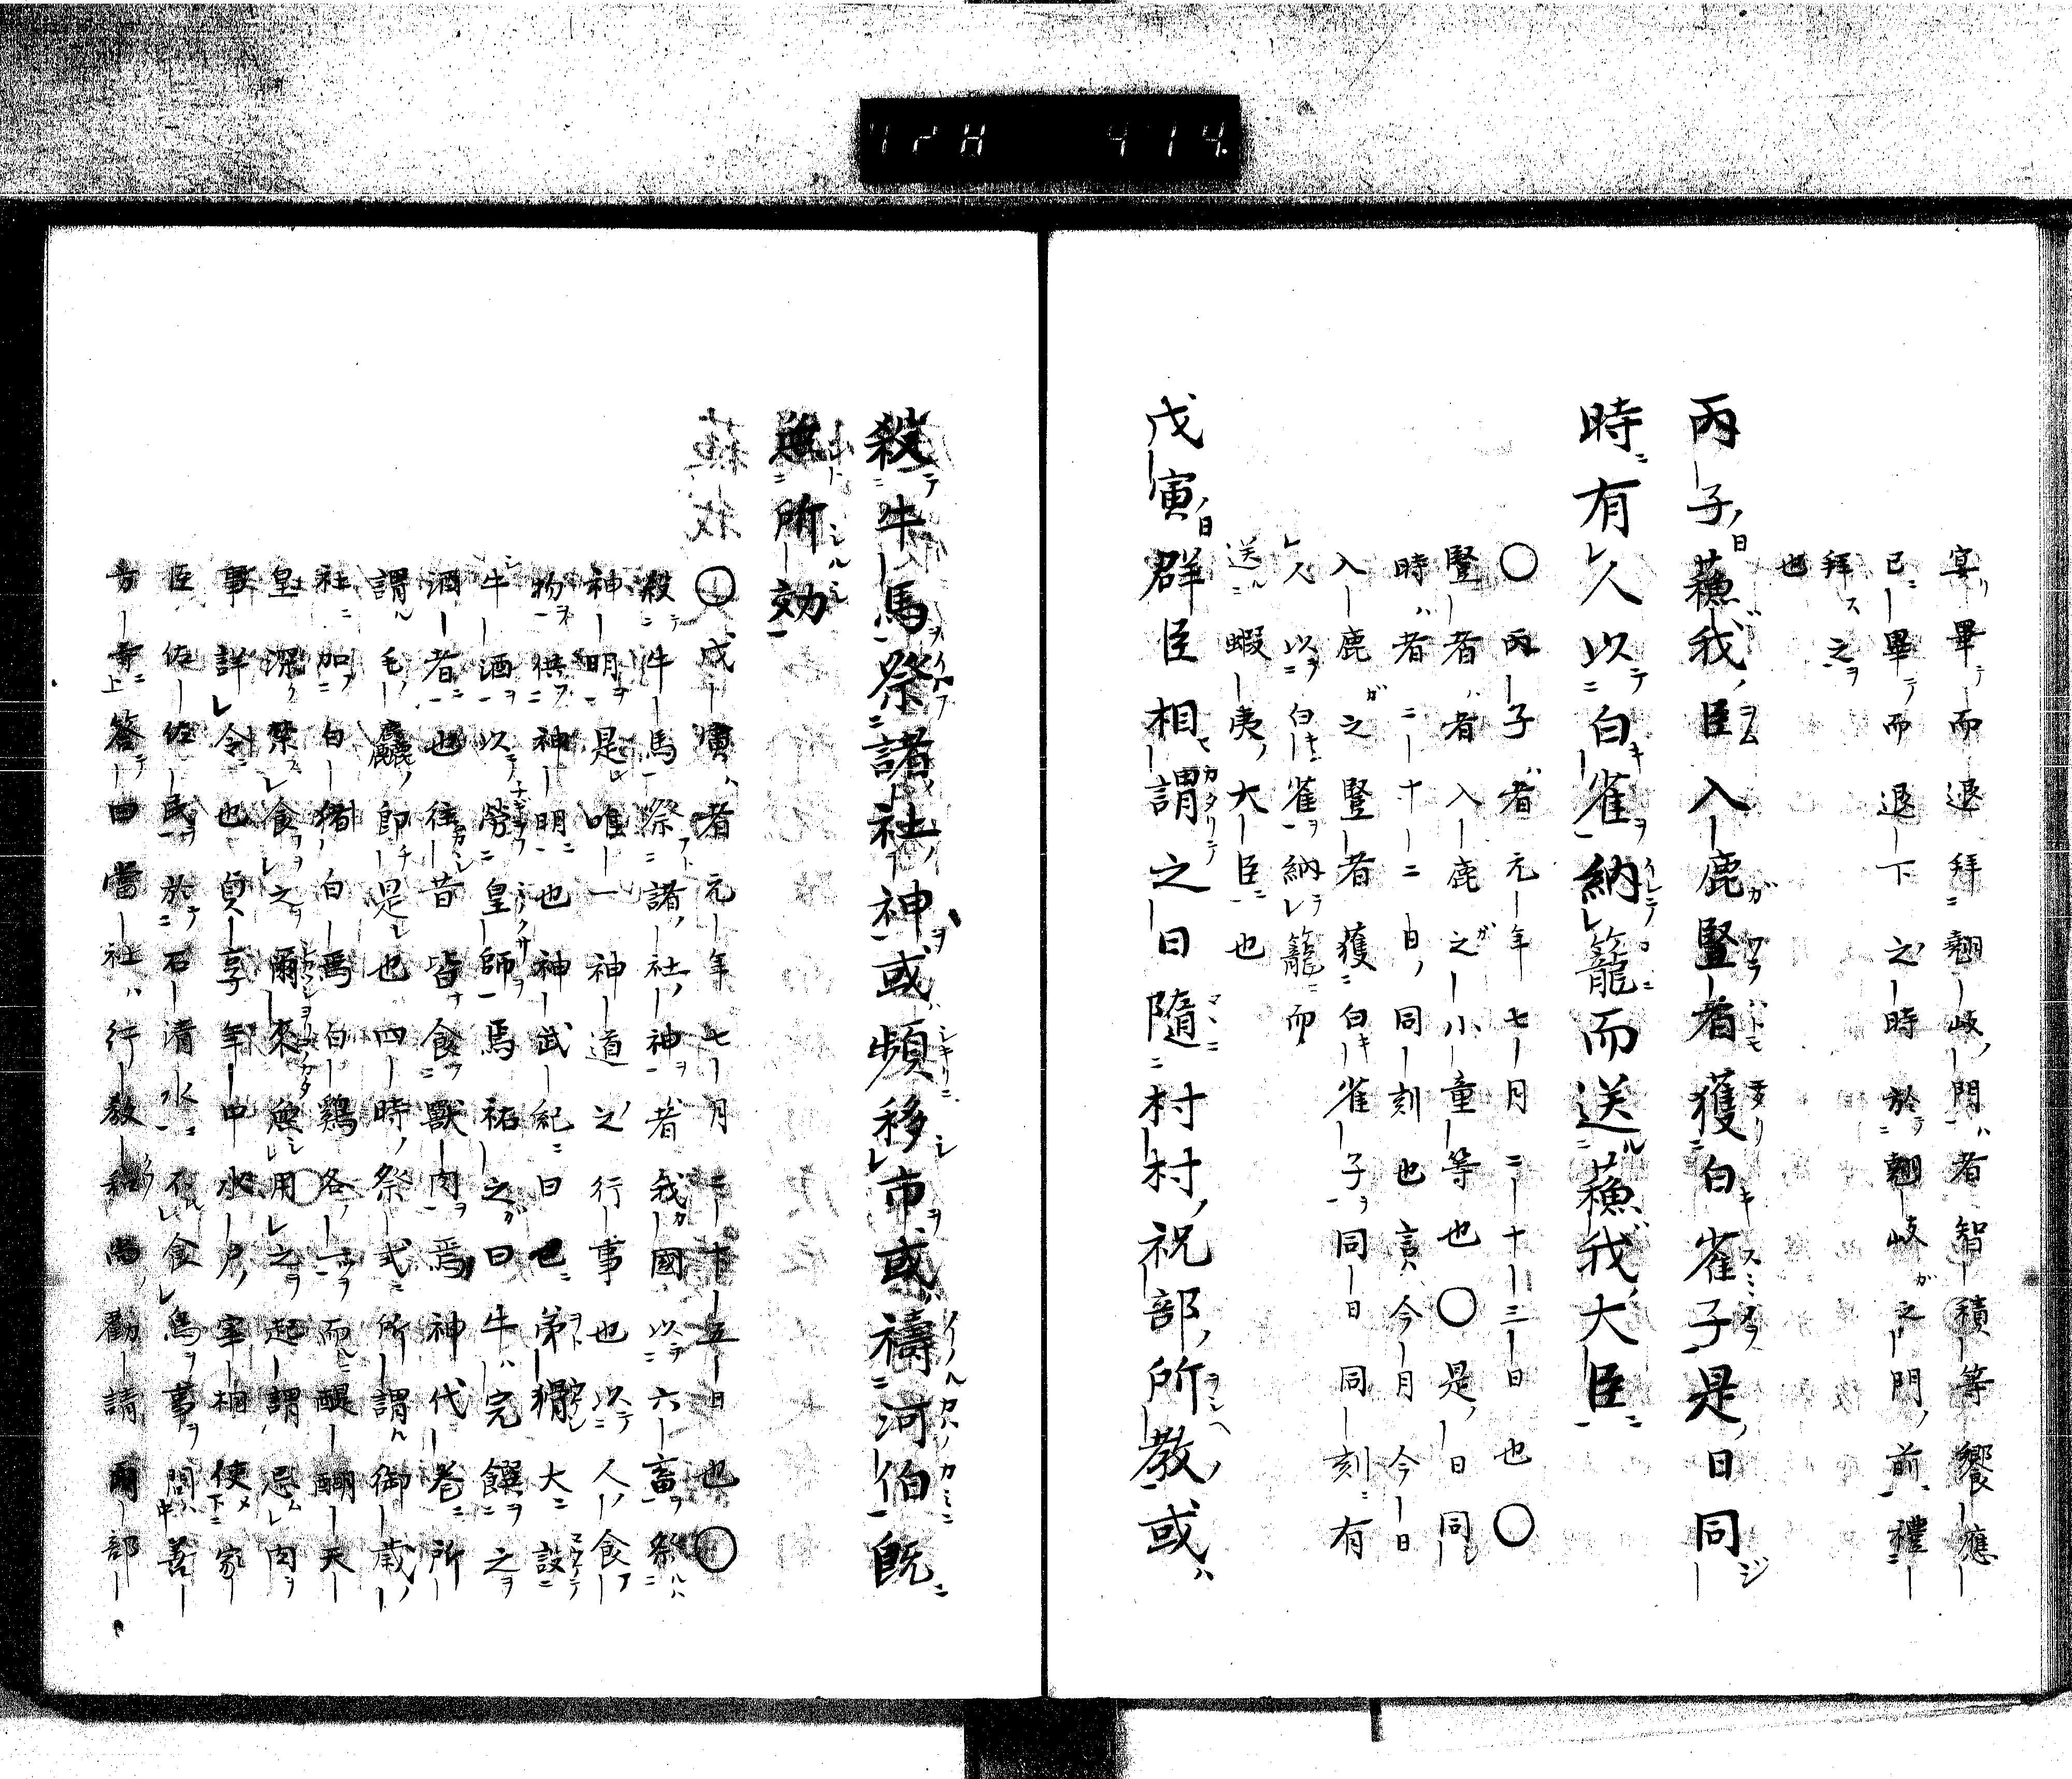 宴畢而退拜翹岐門者智積等饗應
已畢而退下之時於翹岐之門前禮
拜之
也
丙子蘓我臣入鹿豎者獲白雀子是日同
時有人以白雀納籠而送蘓我大臣
〇丙子者元年七月二十三日也〇
豎者者入鹿之小童等也〇是日同
時者二十二日同刻也言今月今日
入鹿之豎者獲白雀子同日同刻有
人以白雀納籠而
送蝦夷大臣也
戊寅群臣相謂之曰隨村村祝部所教或
殺牛馬祭諸社神或頻移市或禱河伯既
無所効
〇戊寅者元年七月二十五日也〇
殺牛馬祭諸社神者我國以六畜祭
神明是唯一神道之行事也以人食
物供神明也神武紀曰已弟猾大設
牛酒以勞皇師焉祐之曰牛完饌之
酒者也往昔皆食獸肉焉神代巻所
謂毛麤即是也四時祭式所謂御歳
社加白猪白馬白鷄各一而醍醐天
皇深禁食之爾來無用之起謂忌肉
事詳令也貞享年中水戸宰相使家
臣佐佐民於石清水不食鳥事問善
方寺答曰當社行教和尚勸請爾部